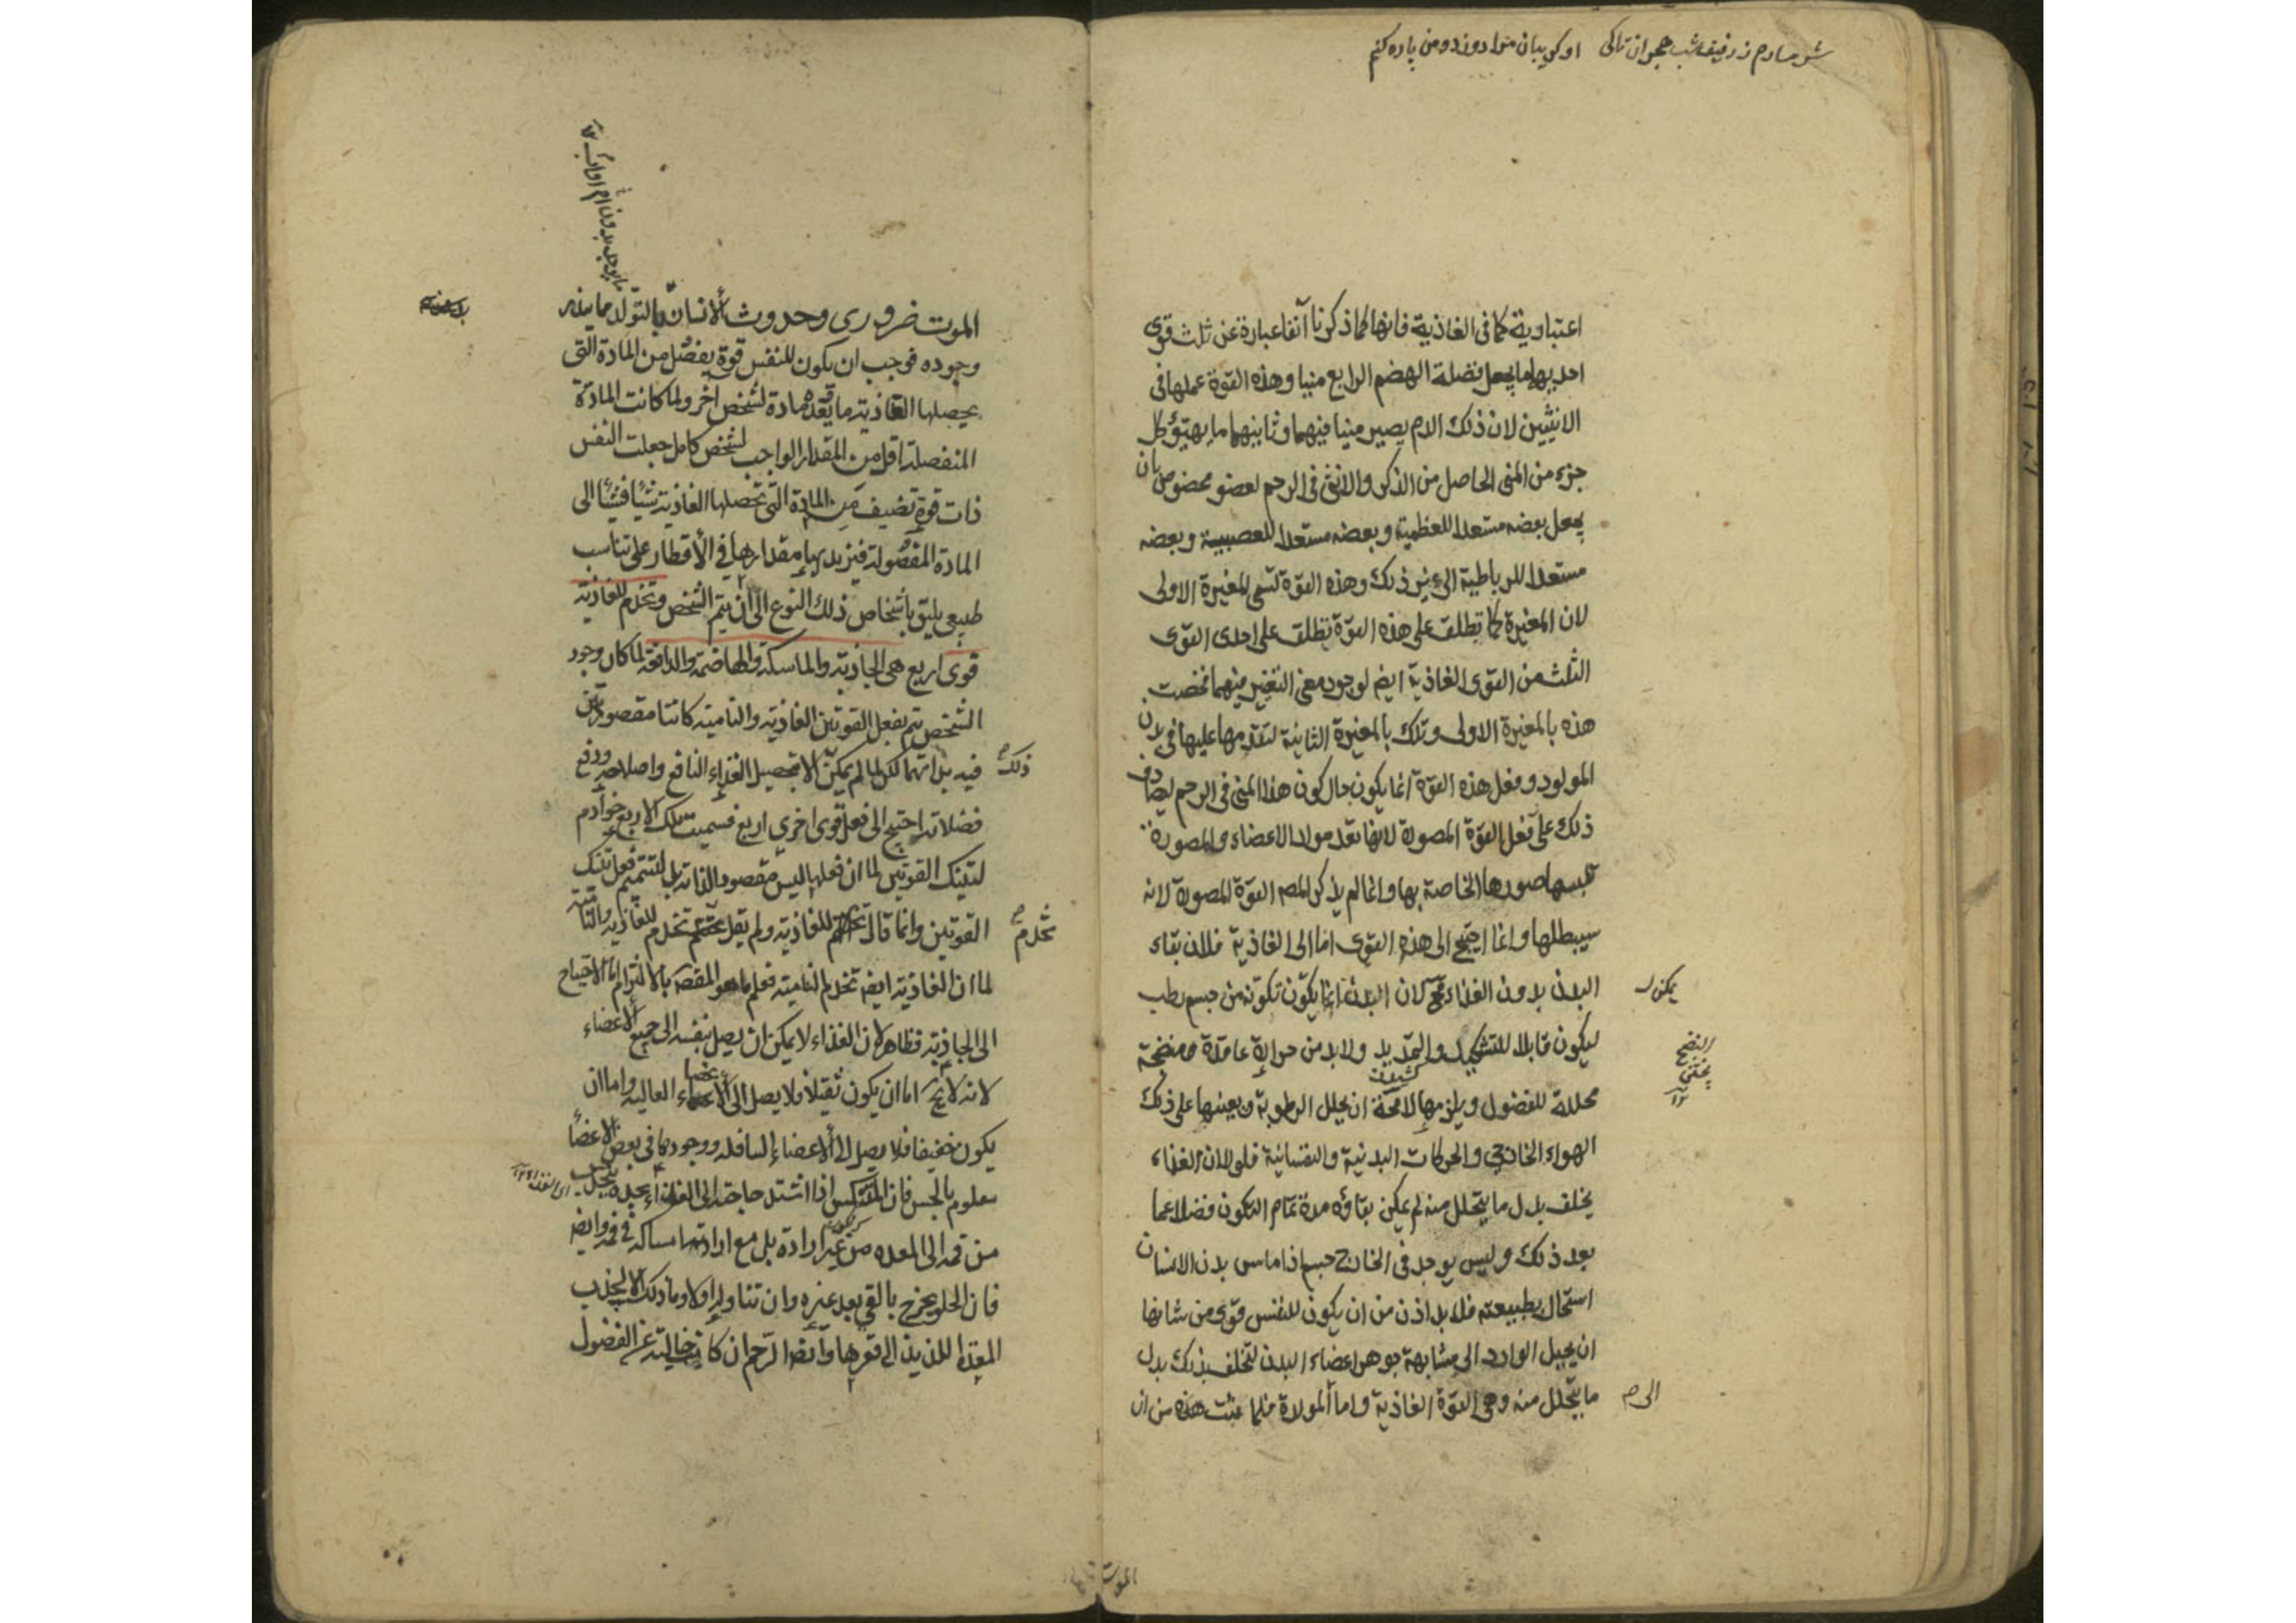 شرمسارم ز رفیقان شب هجران تا کی او گریبان من او دوزد و من پاره کنم
اعتبارية كما فى الغاذية فانها كما ذكرنا آنفا عبارة عن ثلث قوى
احديها ما يجعل فضلة الهضم الرابع منيا وهذه القوة عملها فى
الانثيين لان ذلك الدم يصير منيا فيهما وثانيهما ما يهيؤ كل
جزء من المنى الحاصل من الذكر والانثى فى الرحم لعضو مخصوص بان
يجعل بعضه مستعدا للعظمية وبعضه مستعدا للعصبية وبعضه
مستعدا للرباطية الى غير ذلك وهذه القوة تسمى المغيرة الاولى
لان المغيرة كما تطلق على هذه القوة تطلق على احدى القوى
الثلث من القوى الغاذية ايض لوجود معنى التغير فيهما فخصت
هذه بالمغيرة الاولى وتلك بالمغيرة الثانية لتقدمها عليها فى بدن
المولود وفعل هذه القوة انما يكون حال كون هذا المنى فى الرحم ليصادف
ذلك على فعل القوة المصورة لانها تعد مواد الاعضاء والمصورة
تلبسها صورها الخاصة بها وانما لم يذكر المص القوة المصورة لانه
سيبطلها وانما احتيج الى هذه القوى اما الى الغاذية فلان بقاء
البدن بدون الغذاء مح لان البدن انما يكون تكونه من جسم رطب
يمكن
ليكون قابلا للتشكيل والتمديد ولا بد من حرارة عاقدة ومنضجة
النضج
محللة للفضول ويلزمها لامحة ان يحلل الرطوبة ويعينها على ذلك
الهواء الخارجى والحركات البدنية والنفسانية فلولا ان الغذاء
يخلف بدل ما يتحلل منه لم يمكن بقاؤه مدة تمام التكون فضلا عما
بعد ذلك وليس يوجد فى الخارج جسم اذا ماس بدن الانسان
استحال بطبيعته فلا بد اذن من ان يكون للنفس قوى من شانها
ان يحيل الوارد الى مشابهة جوهر اعضاء البدن لتخلف بذلك بدل
ما يتحلل منه وهى القوة الغاذية واما المولدة فلما
هذه من ان
الى
الموت
الموت ضرورى وحدوث الانسان بالتولد مما يندر
وجوده فوجب ان يكون للنفس قوة يفصل من المادة التى
يحصلها الغاذية ما يعده مادة لشخص اخر ولما كانت المادة
المنفصلة اقل من المقدار الواجب لشخص كامل جعلت النفس
ذات قوة تضيف من المادة التى تحصلها الغاذية شيئا فشيئا الى
المادة المفصولة فيزيد بها مقدارها فى الأقطار على تناسب
طبيعى يليق باشخاص ذلك النوع الى ان يتم الشخص وتخدم الغاذية
قوى اربع هى الجاذبة والماسكة والهاضمة والدافعة لما كان وجود
الشخص يتم بفعل القوتين الغاذية والنامية كانتا مقصودتين
فيه بذاتهما لكن لما لم يمكن الا بتحصيل الغذاء النافع واصلاحه ودفع
ذلك
فضلاته احتيج الى فعل قوى اخرى اربع فسميت تلك الاربع خوادم
لتينك القوتين لما ان فعلها ليس مقصودا لذاته بل لتتميم فعل تينك
القوتين وانما قال تخدم للغاذية ولم يقل تخدم للغاذية والنامية
تخدم
لما ان الغاذية ايض تخدم النامية فعلم ما هو المقص بالالتزام اما الاحتياج
الى الجاذبة فظاهر لان الغذاء لا يمكن ان يصل بنفسه الى جميع الاعضاء
لانه لا يخ اما ان يكون ثقيلا فلا يصل الى الاعضاء العالية واما ان
يكون خفيفا فلا يصل الى الاعضاء السافلة ووجودها فى بعض الاعضاء
معلوم بالحس فان المنتكس اذا اشتد حاجته الى الغذاء يجده ينجذب
من فمه الى المعده من غير ارادة بل مع ارادته امساكه فى فمه وايض
فان الحلو يخرج بالقى بعد غيره وان تناوله اولا وما ذلك الا لجذب
المعدة اللذيذ الى قعرها وايض الرحم ان كانت خالية عن الفضول